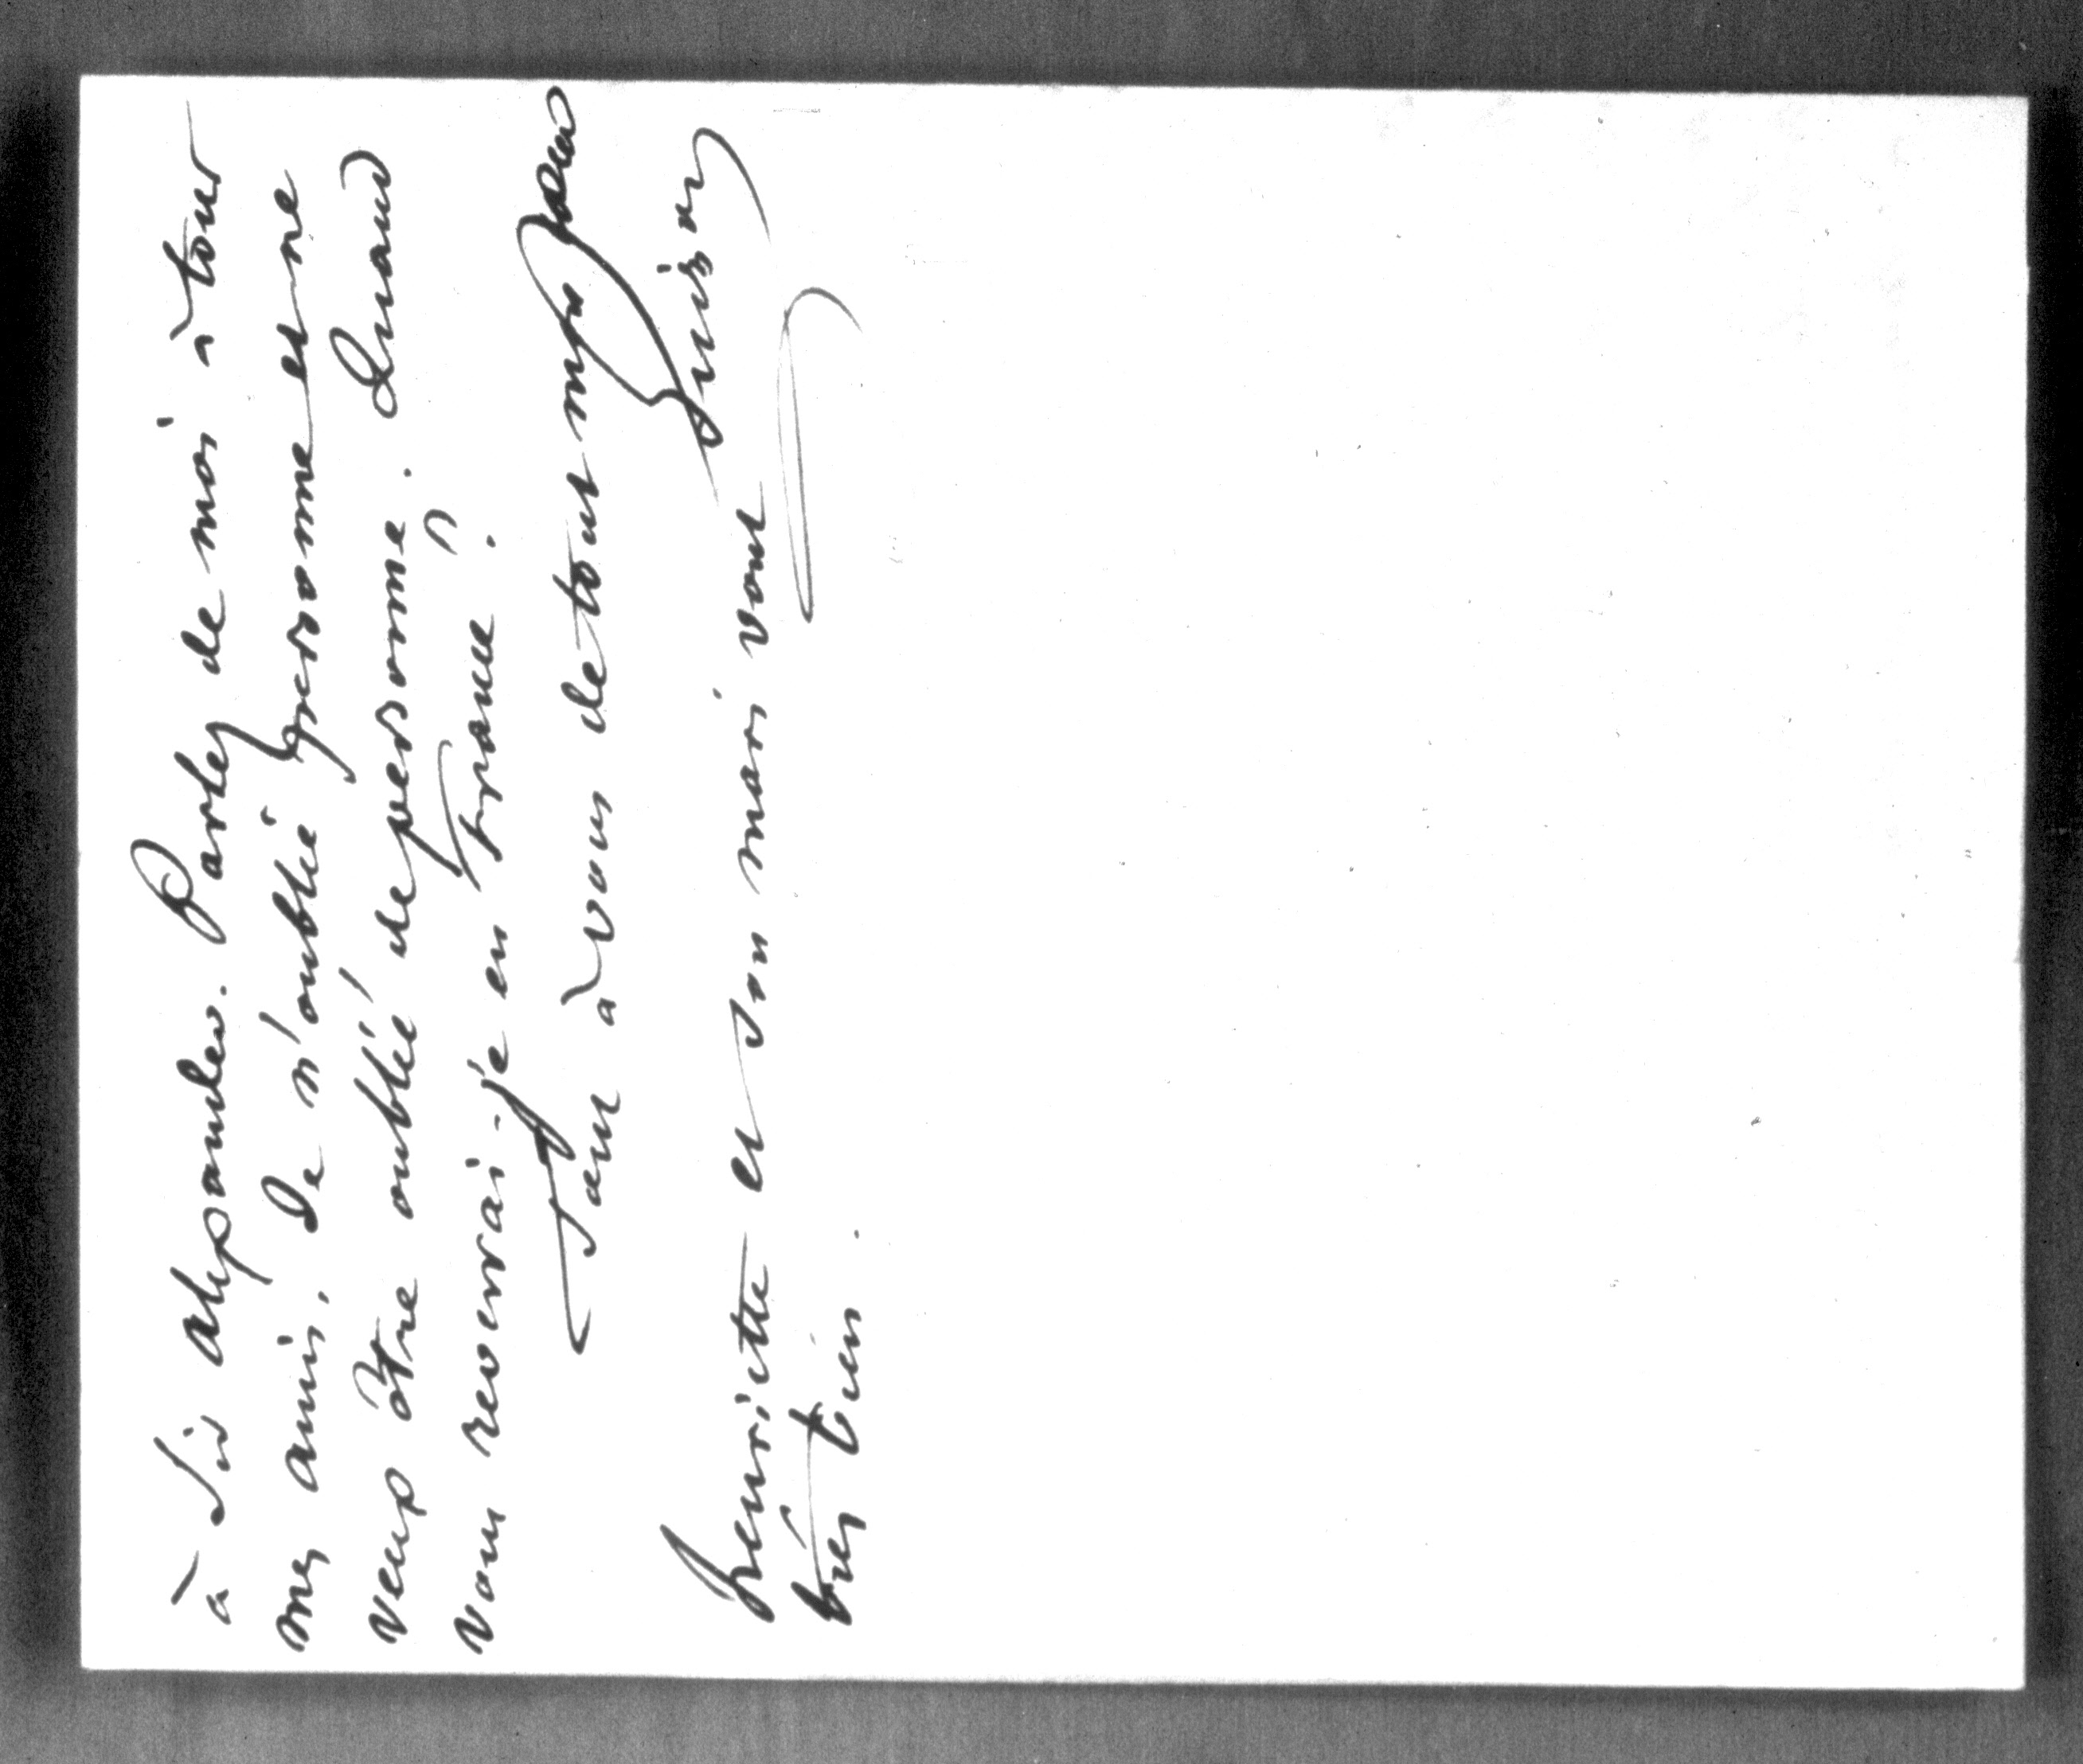 à Sir Alexander. Parlez de moi à tous
mes amis. Je n'oublie personne et ne
veux être oublié de personne. Quand
vous reverrai-je en France ?
Tout à vous de tout mon
Henriette et son mari vont
très bien.